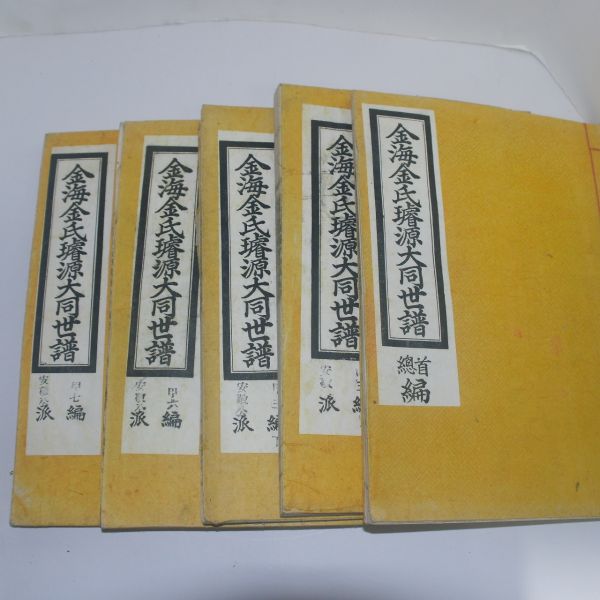 金海金氏璿源大同世譜
甲七編
安敬公派
金海金氏璿源大同世譜
甲六編
安敬公派
金海金氏璿源大同世譜
編
安敬公派
金海金氏璿源大同世譜
編
派
金海金氏璿源大同世譜
首編
總